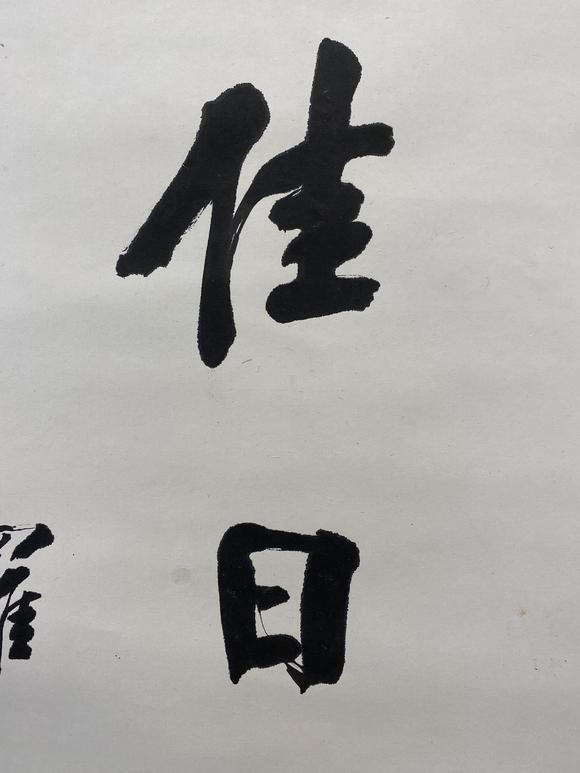 佳日
羅